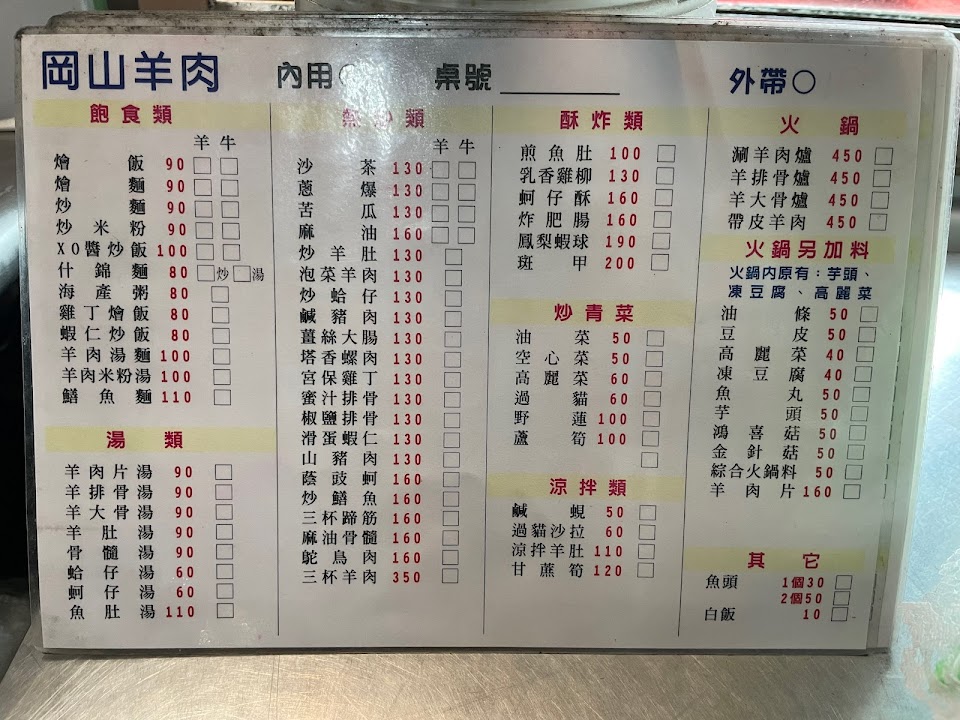 岡山羊肉 內用○ 桌號 外帶○
飽食類
羊 牛
燴飯 90
燴麵 90
炒麵 90
炒米粉 90
XO醬炒飯 100
什錦麵 80 炒 湯
海產粥 80
雞丁燴飯 80
蝦仁炒飯 80
羊肉湯麵 100
羊肉米粉湯 100
鱔魚麵 110
湯類
羊肉片湯 90
羊排骨湯 90
羊大骨湯 90
羊肚湯 90
骨髓湯 90
蛤仔湯 60
蚵仔湯 60
魚肚湯 110
熱炒類
羊 牛
沙茶 130
蔥爆 130
苦瓜 130
麻油 160
炒羊肚 130
泡菜羊肉 130
炒蛤仔 130
鹹豬肉 130
薑絲大腸 130
塔香螺肉 130
宮保雞丁 130
蜜汁排骨 130
椒鹽排骨 130
滑蛋蝦仁 130
山豬肉 130
蔭豉蚵 160
炒鱔魚 160
三杯蹄筋 160
麻油骨髓 160
鴕鳥肉 160
三杯羊肉 350
酥炸類
煎魚肚 100
乳香雞柳 130
蚵仔酥 160
炸肥腸 160
鳳梨蝦球 190
斑甲 200
炒青菜
油菜 50
空心菜 50
高麗菜 60
過貓 60
野蓮 100
蘆筍 100
涼拌類
鹹蜆 50
過貓沙拉 60
涼拌羊肚 110
甘蔗筍 120
火鍋
涮羊肉爐 450
羊排骨爐 450
羊大骨爐 450
帶皮羊肉 450
火鍋另加料
火鍋內原有：芋頭、
凍豆腐、高麗菜
油條 50
豆皮 50
高麗菜 40
凍豆腐 40
魚丸 50
芋頭 50
鴻喜菇 50
金針菇 50
綜合火鍋料 50
羊肉片 160
其它
魚頭 1個30
2個50
白飯 10